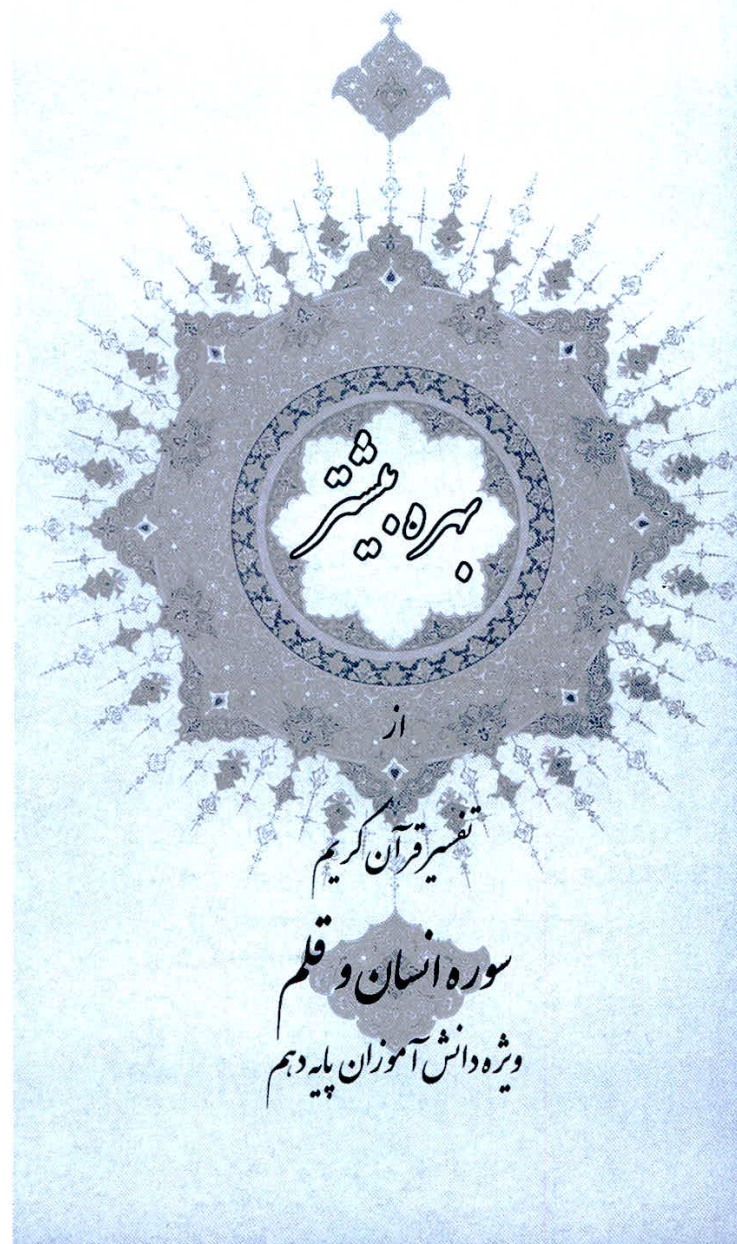 بهره بیشتر
از
تفسیر قرآن کریم
سوره انسان و قلم
ویژه دانش آموزان پایه دهم